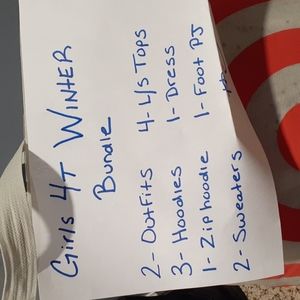 Girls 4T WINTER
Bundle
2- Outfits
3- Hoodies
1- Ziphoodie
2- Sweaters
4- L/S Tops
1- Dress
1- Foot PJ